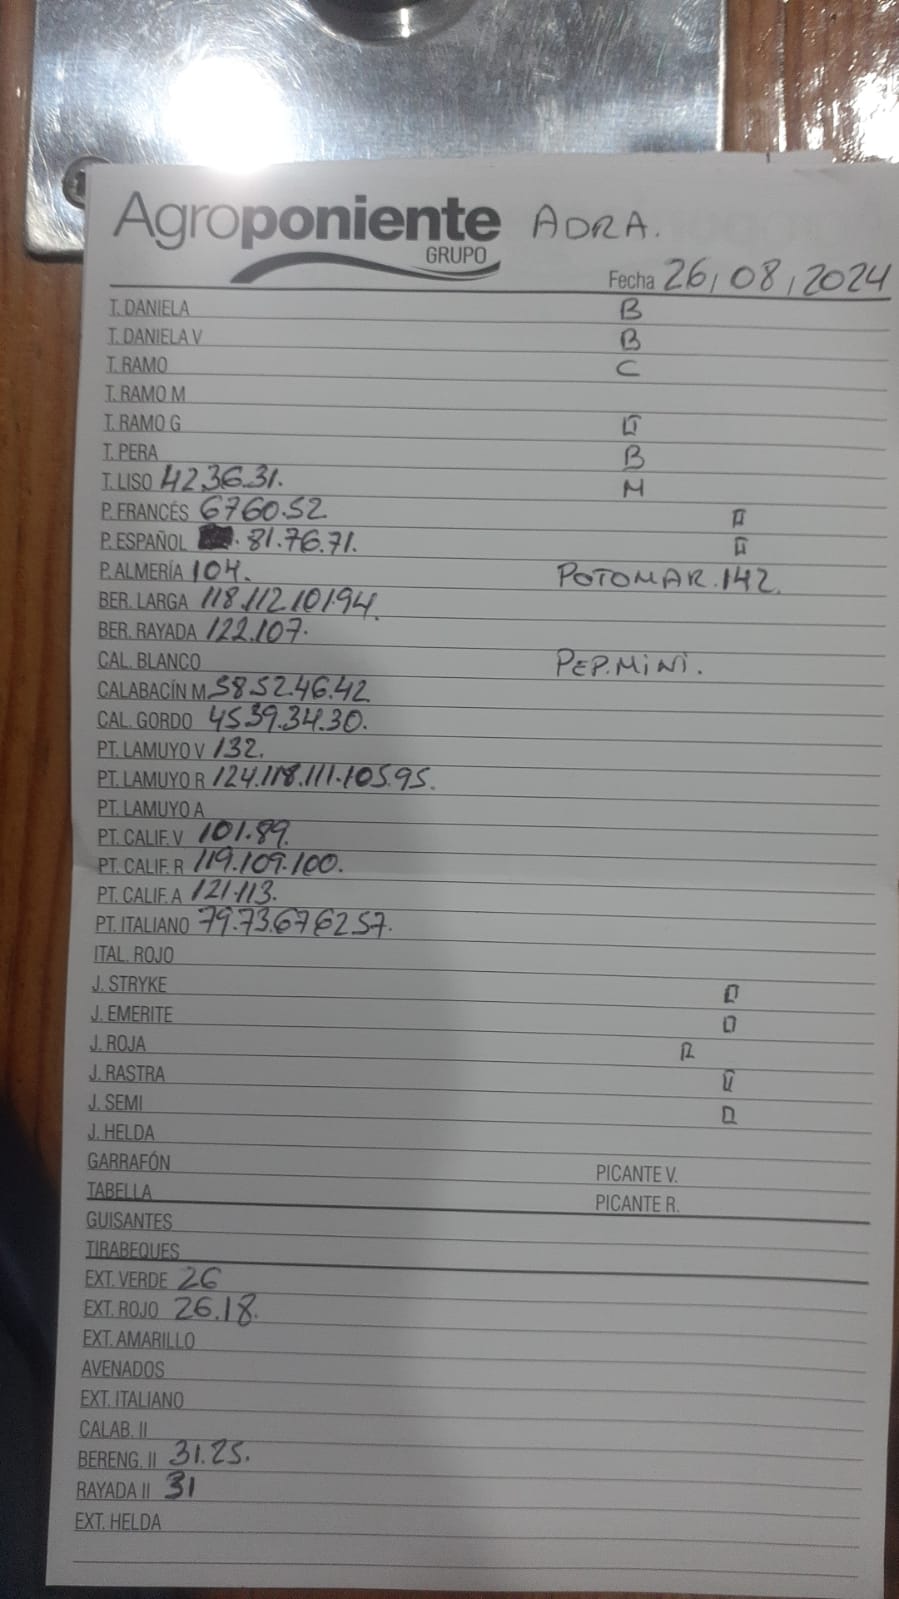 Agroponiente ADRA.
GRUPO
Fecha 26/08/2024
T. DANIELA B
T. DANIELA V B
T. RAMO C
T. RAMO M
T. RAMO G
T. PERA B
T. LISO 42.36.31. M
P. FRANCÉS 67.60.52.
P. ESPAÑOL . 81.76.71.
P. ALMERÍA 104. POTOMAR.142.
BER. LARGA 118.112.101.94.
BER. RAYADA 122.107.
CAL. BLANCO PEP.MiNi.
CALABACÍN M 58.52.46.42
CAL. GORDO 45.39.34.30.
PT. LAMUYO V 132.
PT. LAMUYO R 124.118.111.105.95.
PT. LAMUYO A
PT. CALIF. V 101.89.
PT. CALIF. R 119.109.100.
PT. CALIF. A 121.113.
PT. ITALIANO 79.73.67.62.57.
ITAL. ROJO
J. STRYKE
J. EMERITE
J. ROJA
J. RASTRA
J. SEMI
J. HELDA
GARRAFÓN PICANTE V.
TABELLA PICANTE R.
GUISANTES
TIRABEQUES
EXT. VERDE 26
EXT. ROJO 26.18.
EXT. AMARILLO
AVENADOS
EXT. ITALIANO
CALAB. II
BERENG. II 31.25.
RAYADA II 31
EXT. HELDA